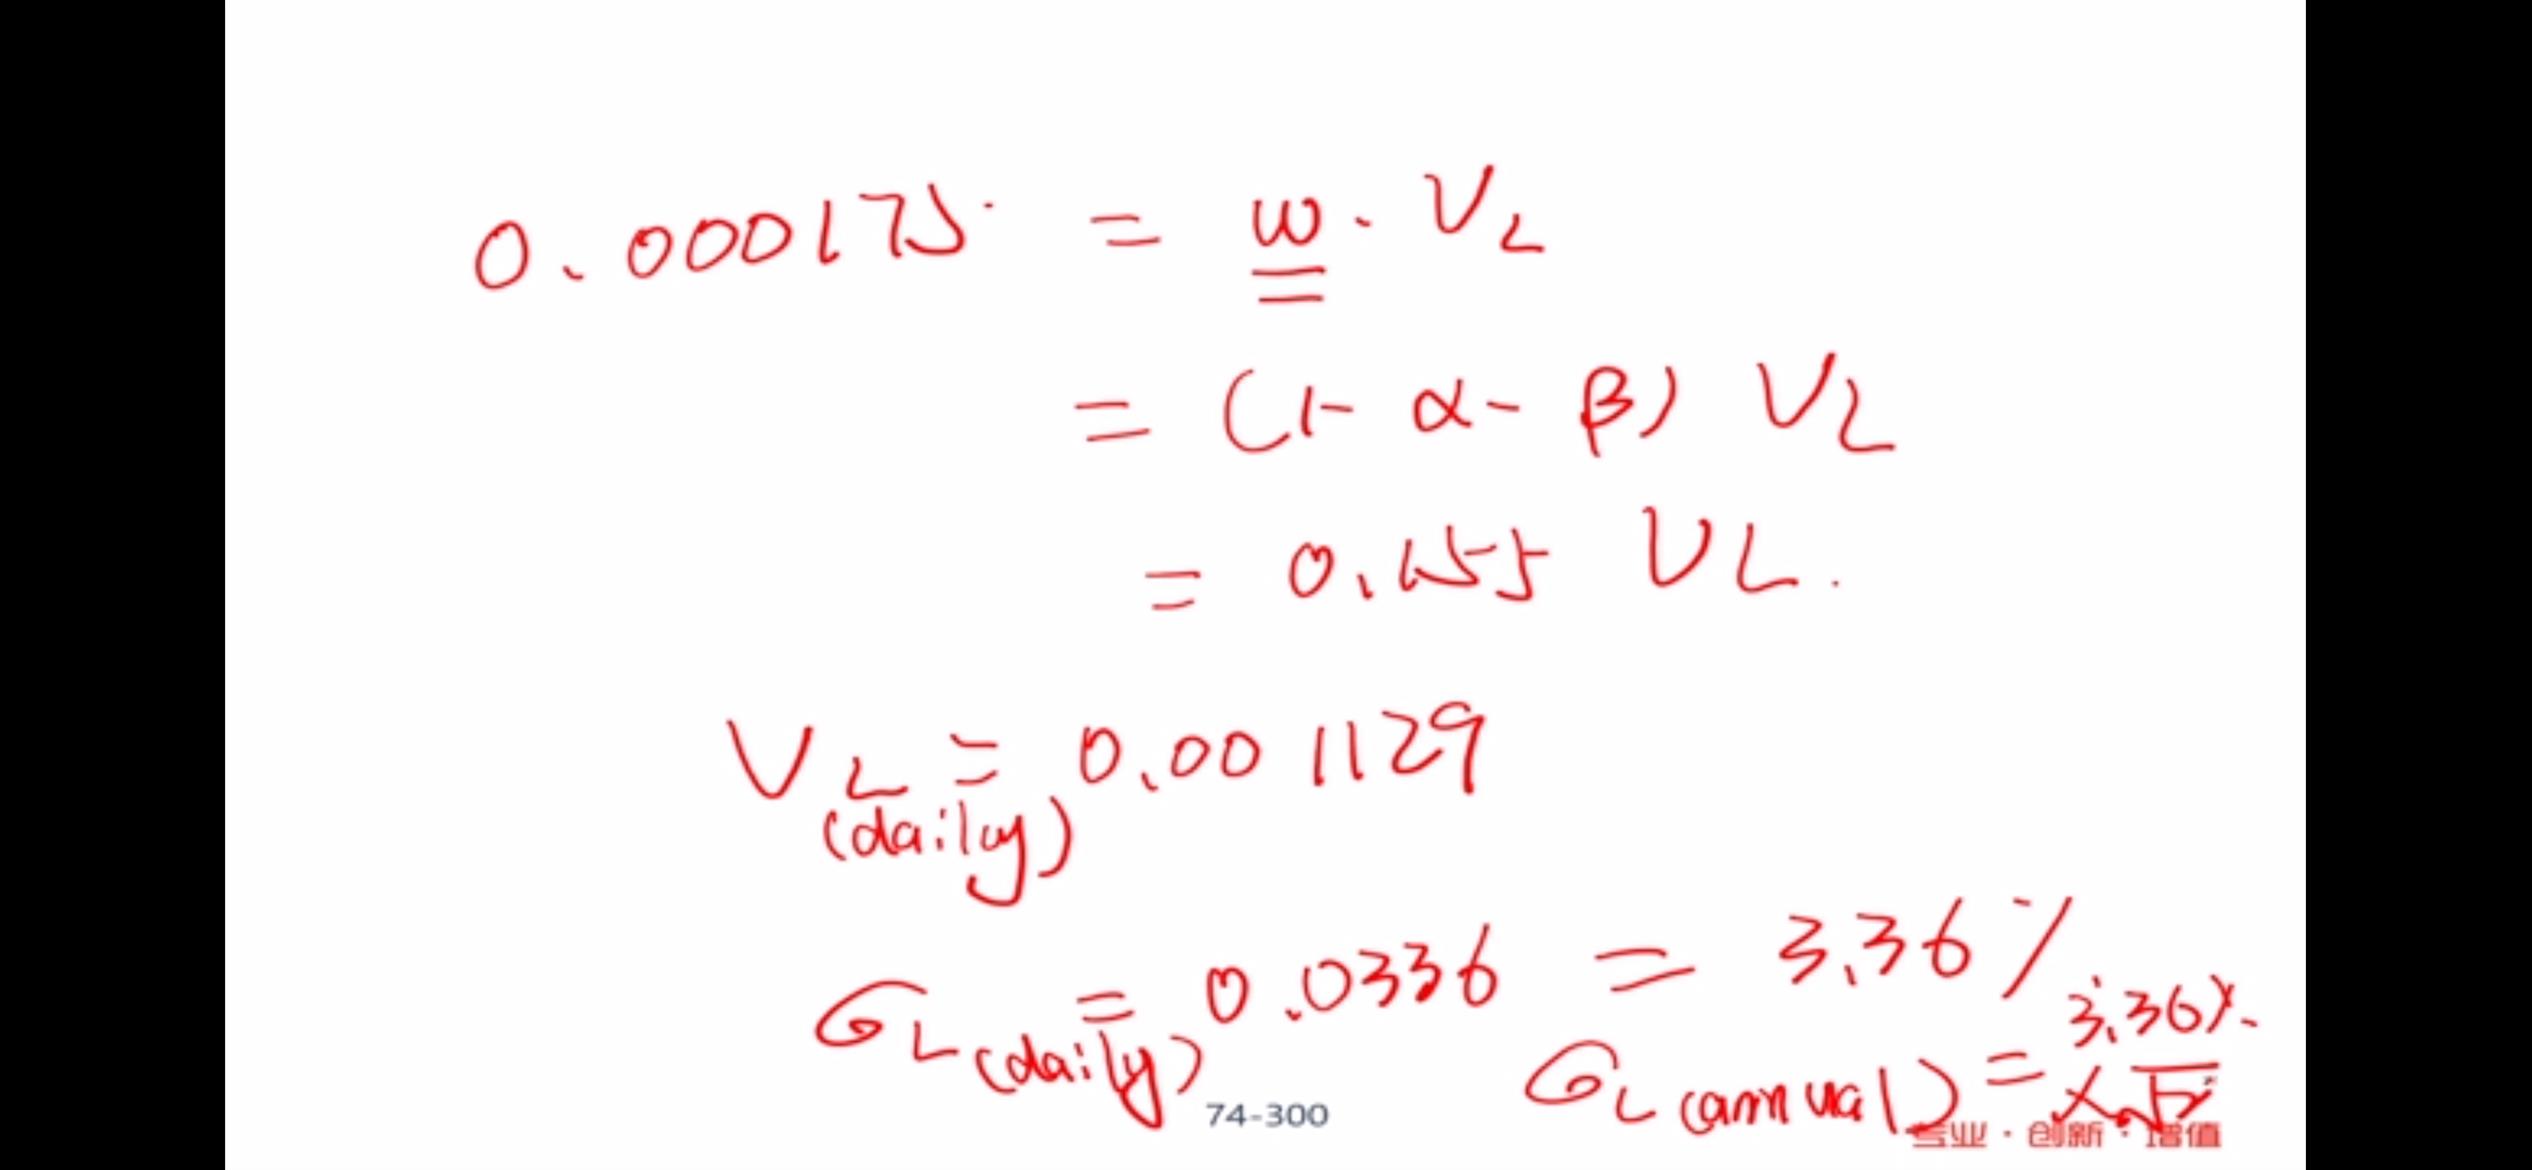 0.000175 = w · V_L
= (1 - α - β) V_L
= 0.155 V_L.
V_L (daily) = 0.001129
σ_L (daily) = 0.0336 = 3.36%
σ_L (annual) = 3.36% ×
74-300
专业·创新·增值